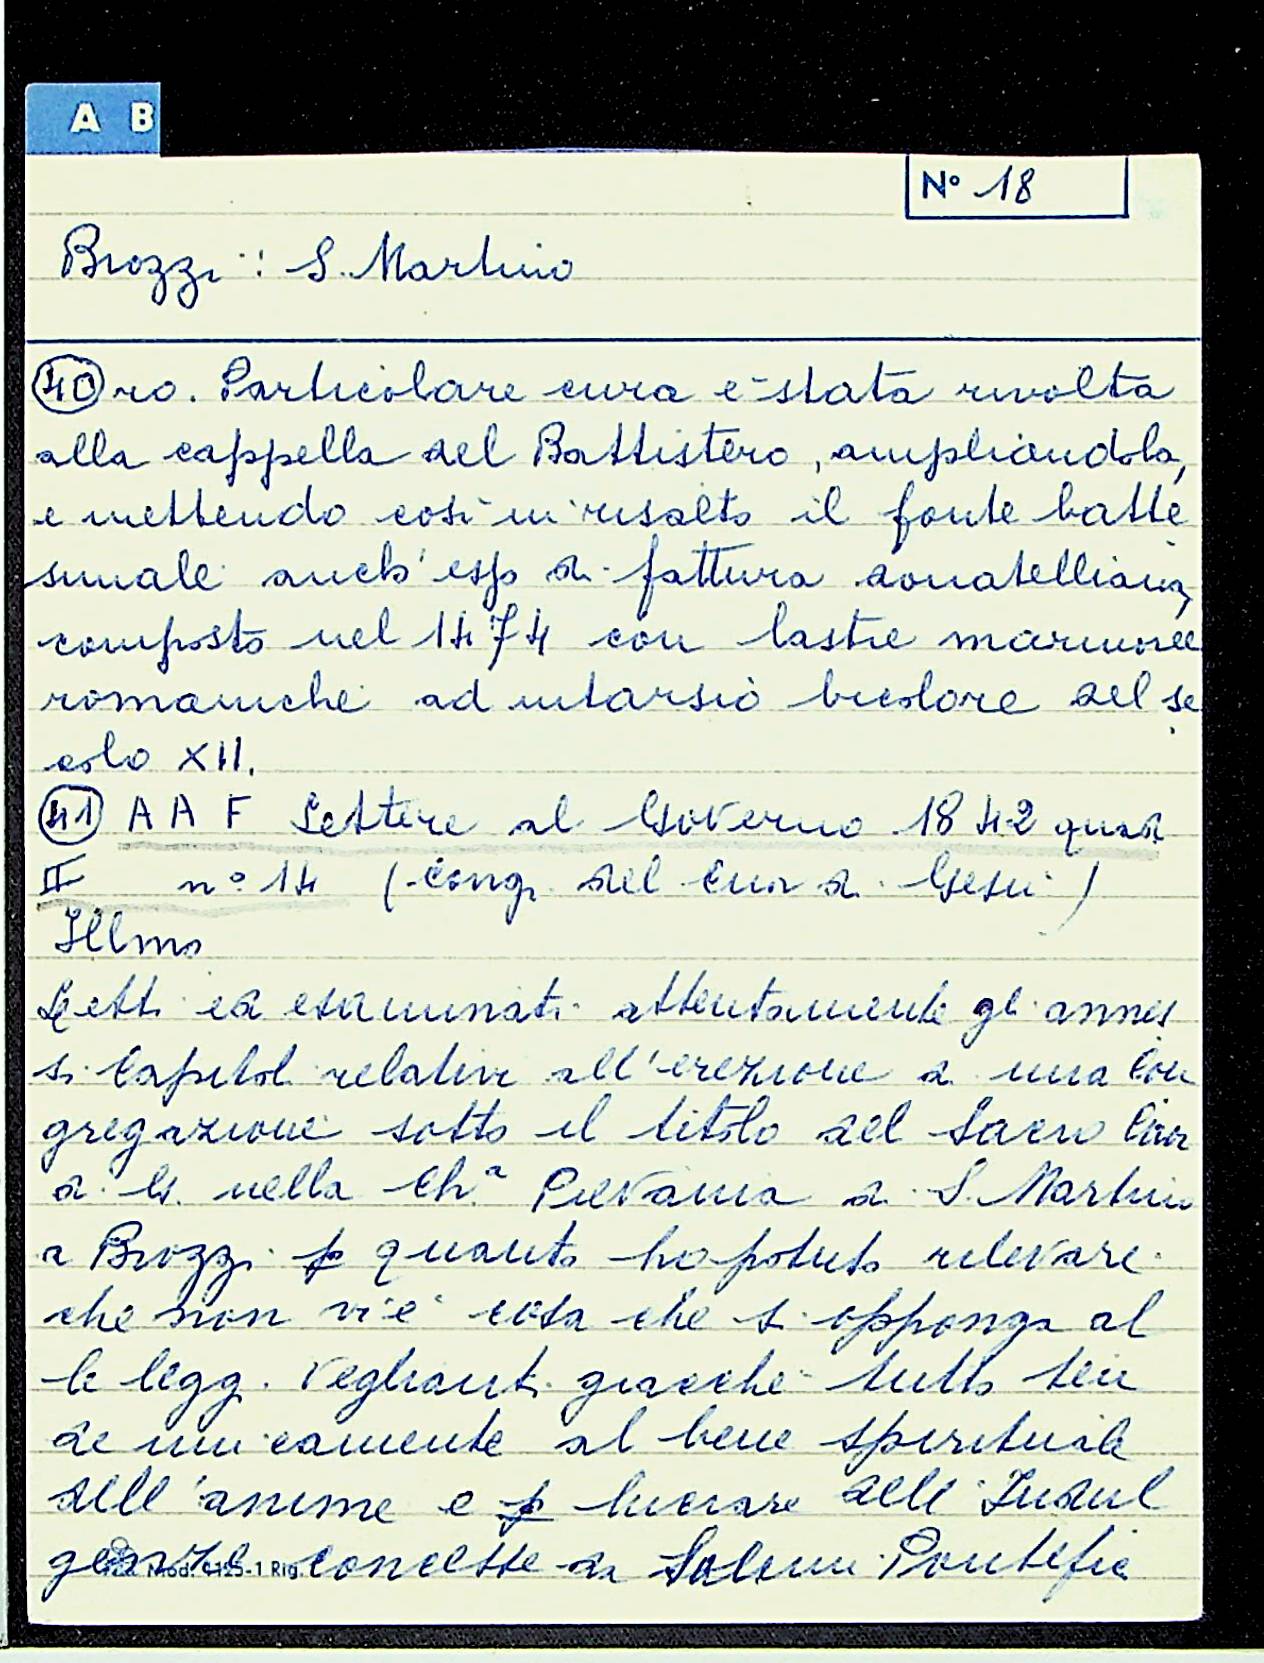 A B
N° 18
Brozzi: S. Martino
40 ro. Particolare cura è stata rivolta
alla cappella del Battistero, ampliandola,
e mettendo così in risalto il fonte batte
simale anch'esso di fattura donatelliana,
composto nel 1474 con lastre marmoree
romaniche ad intarsio bicolore del se
colo XII.
41 A A F Lettere al Governo 1842 quad
II n° 14 (Cong. del Cuor di Gesù)
Illmo
Letti ed esaminati attentamente gli annes
si Capitoli relativi all'erezione di una Con
gregazione sotto il titolo del Sacro Cuor
di G. nella Ch.ª Pievania di S. Martino
a Brozzi p quanto ho potuto rilevare
che non vi è cosa che si opponga al
le legg. veglianti giacchè tutto ten
de unicamente al bene spirituale
dell'anime e p lucrare dell'Indul
genze concesse da Pontefic
Mod. 9125-1 Rig.